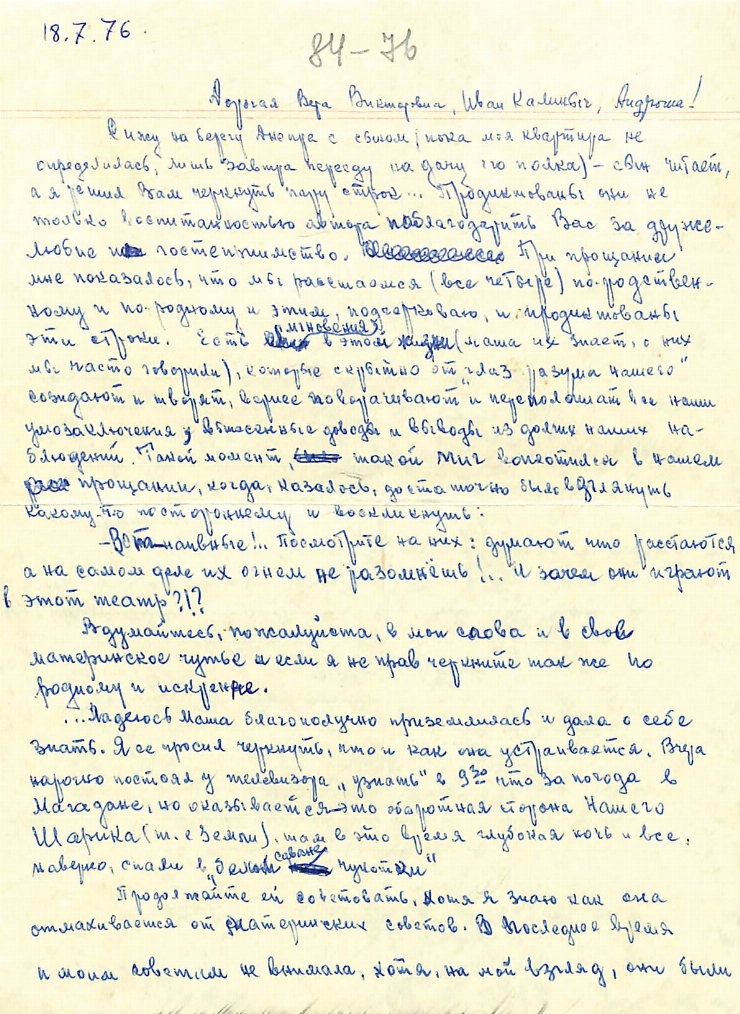 18.7.76.
84-76
Дорогая Вера Викторовна, Иван Калиныч, Андрюша!
Сижу на берегу Днепра с сыном (пока моя квартира не
определилась, лишь завтра перееду на дачу его полка) - сын читает,
а я решил Вам черкнуть пару строк... Продиктованы они не
только воспитанностью автора поблагодарить Вас за друже-
любие и гостеприимство. При прощании
мне показалось, что мы расстаемся (все четыре) по-родствен-
ному и по-родному и этим, подчеркиваю, и продиктованы
эти строки. Есть мгновения в этой жизни (маша их знает, о них
мы часто говорили), которые скрытно от "глаз разума нашего"
созидают и творят, вернее поворачивают и переполашат все наши
умозаключения, выношенные доводы и выводы из долгих наших на-
блюдений. Такой момент, такой миг воплотился в нашем
прощании, когда, казалось, достаточно было взглянуть
какому-то постороннему и воскликнуть:
-Вота наивные!.. Посмотрите на них: думают что расстаются
а на самом деле их огнем не разомнешь!.. И зачем они играют
в этот театр?!?
Вдумайтесь, пожалуйста, в мои слова и в свое
материнское чутье и если я не прав черкните так же по
родному и искренне.
...Надеюсь Маша благополучно приземлилась и дала о себе
знать. Я ее просил черкнуть, что и как она устраивается. Вчера
нарочно постоял у телевизора "узнать" в 9 30 что за погода в
Магадане, но оказывается-это оборотная сторона Нашего
Шарика (т.е Земли), там в это время глубокая ночь и все,
наверно, спали в "белом саване чукотки"
Продолжайте ей советовать, хотя я знаю как она
отмахивается от материнских советов. В последнее время
и моим советам не внимала, хотя, на мой взгляд, они были